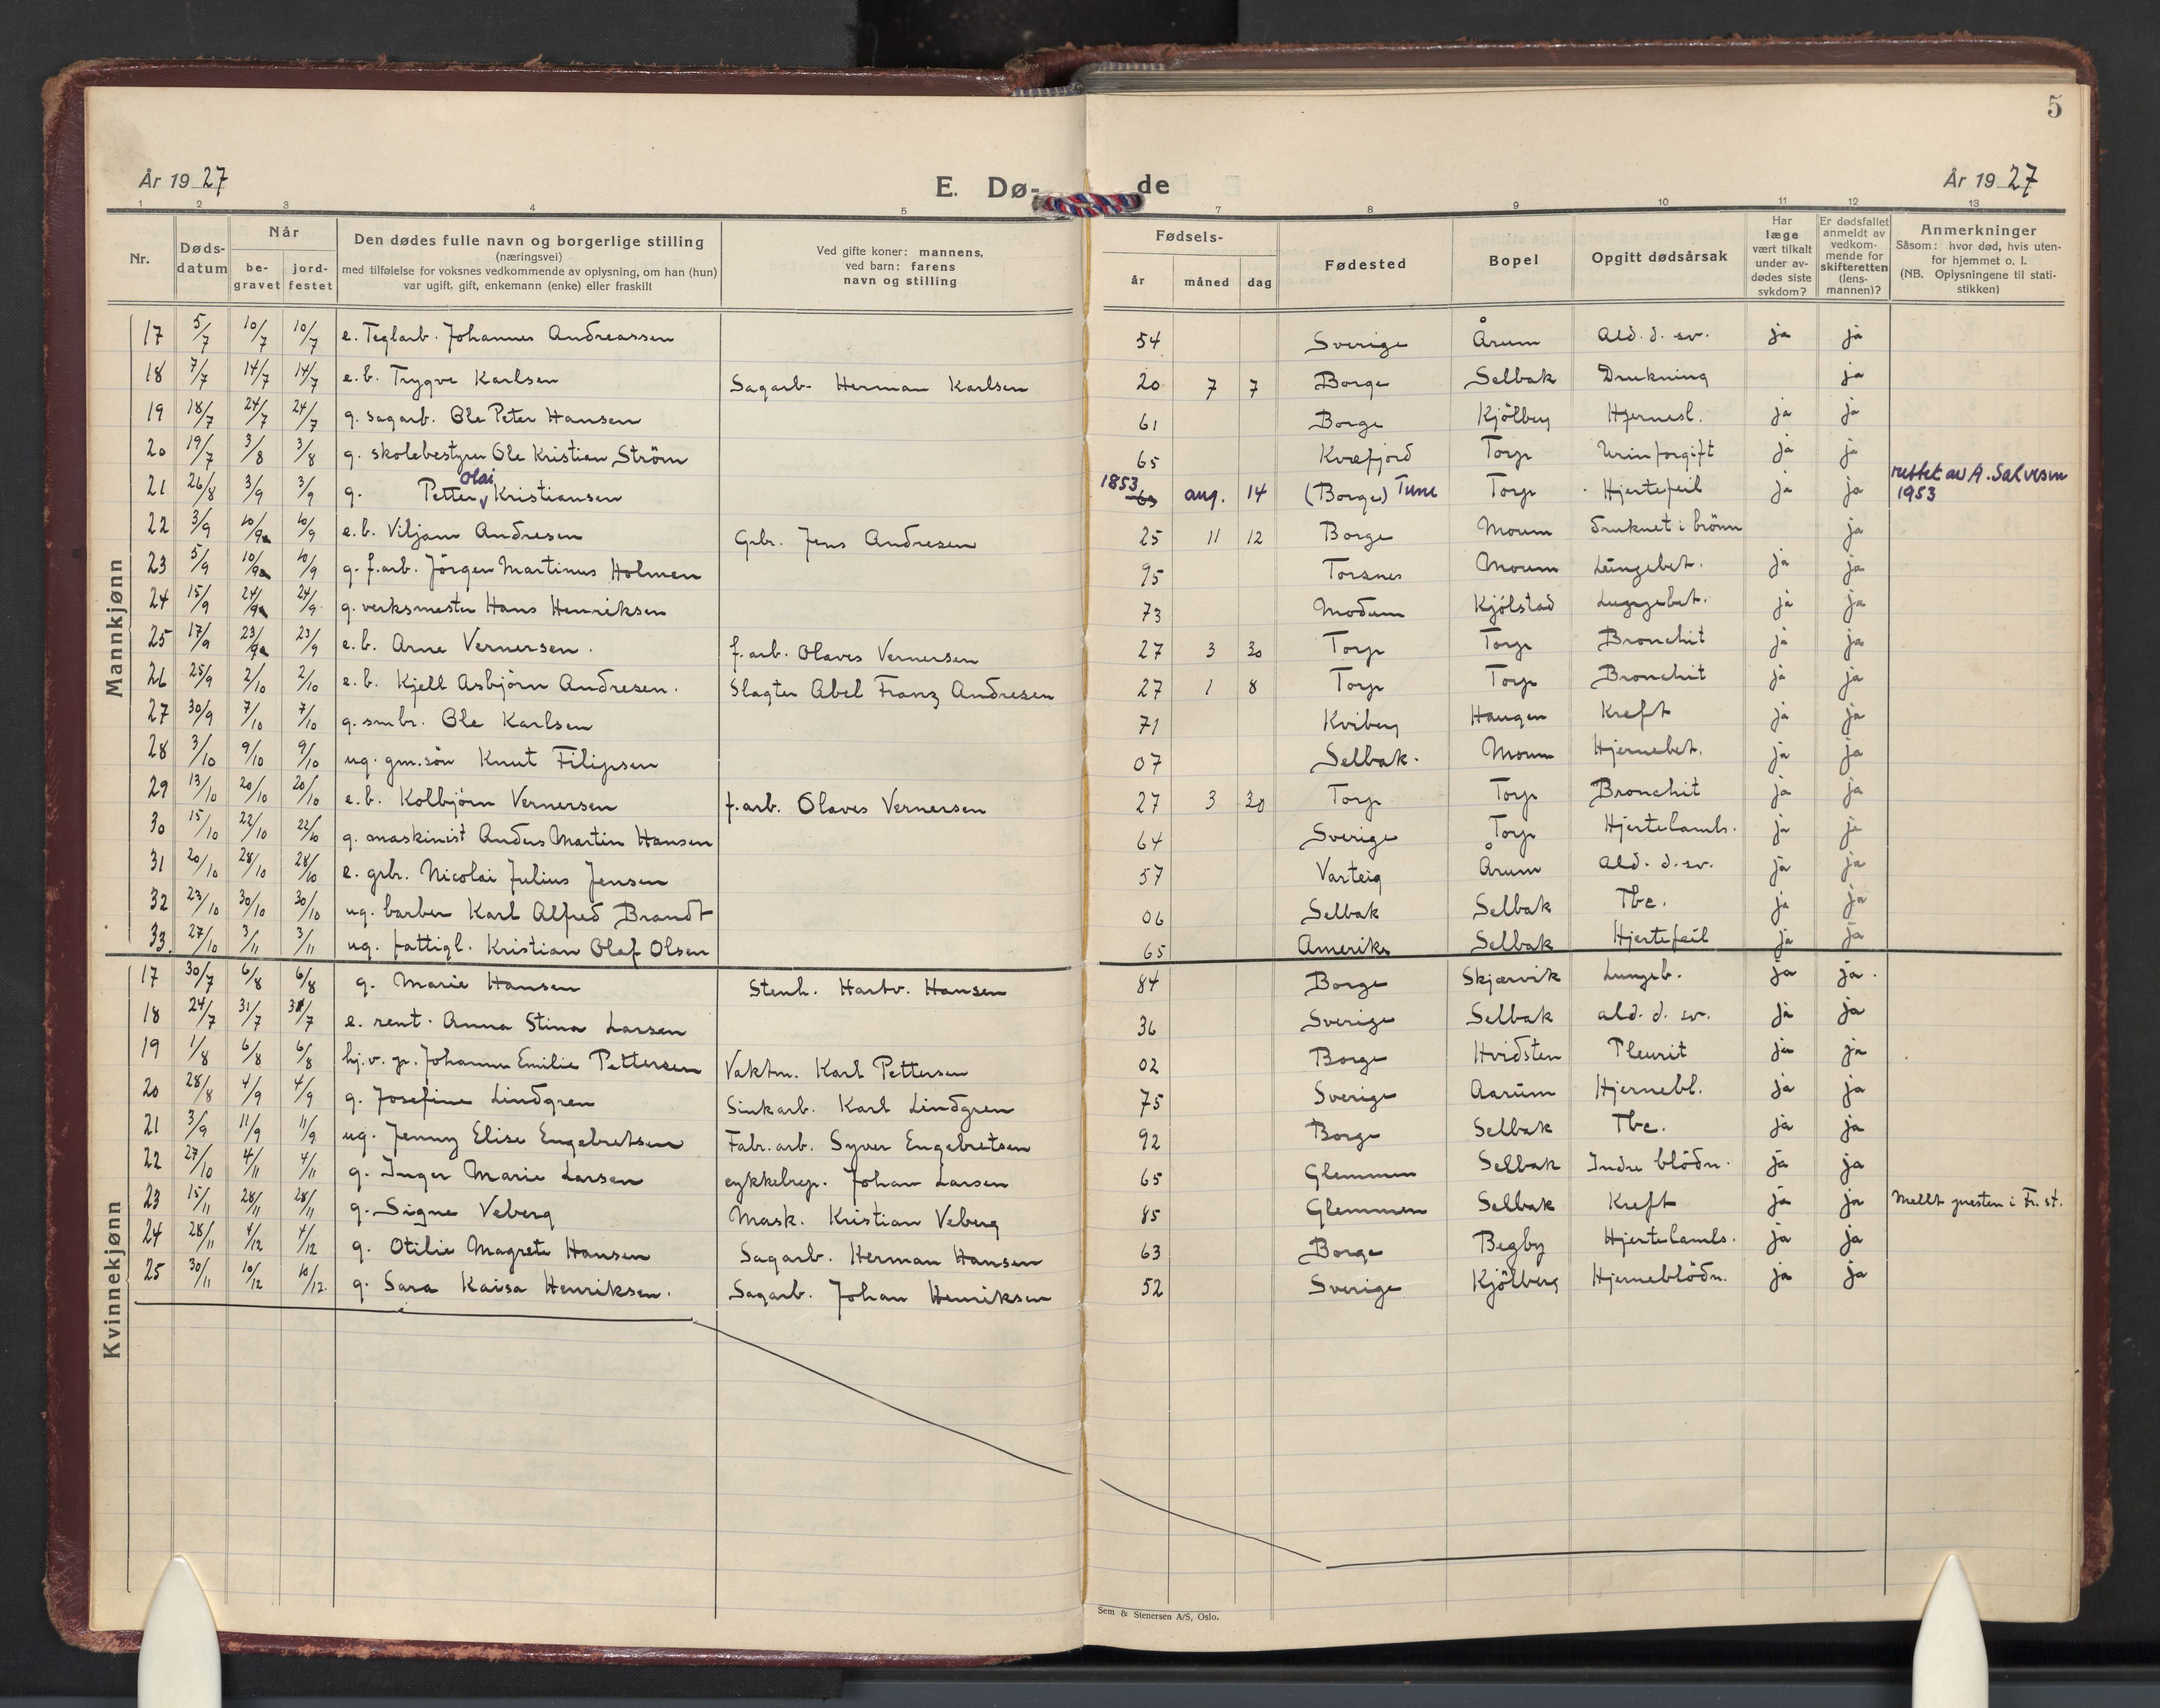 5
År 1927 E. Dø- de År 1927
1 2 3 4 5 7 8 9 10 11 12 13
Nr. Døds-datum Når be-gravet jord-festet Den dødes fulle navn og borgerlige stilling (næringsvei) med tilføielse for voksnes vedkommende av oplysning, om han (hun) var ugift, gift, enkemann (enke) eller fraskilt Ved gifte koner: mannens, ved barn: farens navn og stilling Fødsels- år måned dag Fødested Bopel Opgitt dødsårsak Har læge vært tilkalt under av-dødes siste sykdom? Er dødsfallet anmeldt av vedkom-mende for skifteretten (lens-mannen)? Anmerkninger Såsom: hvor død, hvis uten-for hjemmet o. l. (NB. Oplysningene til stati-stikken)
Mannkjønn
17 5/7 10/7 10/7 e. Teglarb. Johannes Andreassen 54 Sverige Årum Ald. d. sv. ja ja
18 7/7 14/7 14/7 e.b. Trygve Karlsen Sagarb. Herman Karlsen 20 7 7 Borge Selbak Drukning ja
19 18/7 24/7 24/7 g. sagarb. Ole Peter Hansen 61 Borge Kjölberg Hjernesl. ja ja
20 19/7 3/8 3/8 g. skolebestyrer Ole Kristian Ström 65 Kvæfjord Torp Urinforgift ja ja
21 26/8 3/9 3/9 g. Petter Olai Kristiansen 1853 63 aug. 14 (Borge) Tune Torp Hjertefeil ja ja rettet av A. Salvesen 1953
22 3/9 10/9 10/9 e.b. Viljam Andresen Grbr. Jens Andresen 25 11 12 Borge Moum druknet i brönn ja
23 5/9 10/9 10/9 g. f.arb. Jörgen Martinus Holmen 95 Torsnes Moum Lungebet. ja ja
24 15/9 24/9 24/9 g. verksmester Hans Henriksen 73 Modum Kjölstad Lungebet. ja ja
25 17/9 23/9 23/9 e.b. Arne Vernersen. f.arb. Olaves Vernersen 27 3 30 Torp Torp Bronchit ja ja
26 25/9 2/10 2/10 e.b. Kjell Asbjörn Andresen. Slagter Abel Franz Andresen 27 1 8 Torp Torp Bronchit ja ja
27 30/9 7/10 7/10 g. smbr. Ole Karlsen 71 Kviberg Haugen Kreft ja ja
28 3/10 9/10 9/10 ug. gm.sön Knut Filipsen 07 Selbak. Moum Hjernebet. ja ja
29 13/10 20/10 20/10 e.b. Kolbjörn Vernersen f.arb. Olaves Vernersen 27 3 30 Torp Torp Bronchit ja ja
30 15/10 22/10 22/10 g. maskinist Anders Martin Hansen 64 Sverige Torp Hjertelamls. ja ja
31 20/10 28/10 28/10 e. grbr. Nicolai Julius Jensen 57 Varteig Årum Ald. d. sv. ja ja
32 23/10 30/10 30/10 ug. barber Karl Alfred Brandt 06 Selbak Selbak Tbc. ja ja
33. 27/10 3/11 3/11 ug. fattigl. Kristian Olaf Olsen 65 Amerika Selbak Hjertefeil ja ja
Kvinnekjønn
17 30/7 6/8 6/8 g. Marie Hansen Stenh. Hartv. Hansen 84 Borge Skjærvik Lungeb. ja ja.
18 24/7 31/7 31/7 e. rent. Anna Stina Larsen 36 Sverige Selbak ald. d. sv. ja ja
19 1/8 6/8 6/8 hj.v. g. Johanne Emilie Pettersen Vaktm. Karl Pettersen 02 Borge Hvidsten Pleurit ja ja
20 28/8 4/9 4/9 g. Josefine Lindgren Sinkarb. Karl Lindgren 75 Sverige Aarum Hjernebl. ja ja
21 3/9 11/9 11/9 ug. Jenny Elise Engebretsen Fabr.arb. Syver Engebretsen 92 Borge Selbak Tbc. ja ja
22 27/10 4/11 4/11 g. Inger Marie Larsen cykkelrep. Johan Larsen 65 Glemmen Selbak Indre blödn. ja ja
23 15/11 28/11 28/11 g. Signe Veberg Mask. Kristian Veberg 85 Glemmen Selbak Kreft ja ja Meldt presten i Fr.st.
24 28/11 4/12 4/12 g. Otilie Magrete Hansen Sagarb. Herman Hansen 63 Borge Begby Hjertelamls. ja ja
25 30/11 10/12 10/12. g. Sara Kaisa Henriksen. Sagarb. Johan Henriksen 52 Sverige Kjölberg Hjerneblödn. ja ja
Sem & Stenersen A/S, Oslo.